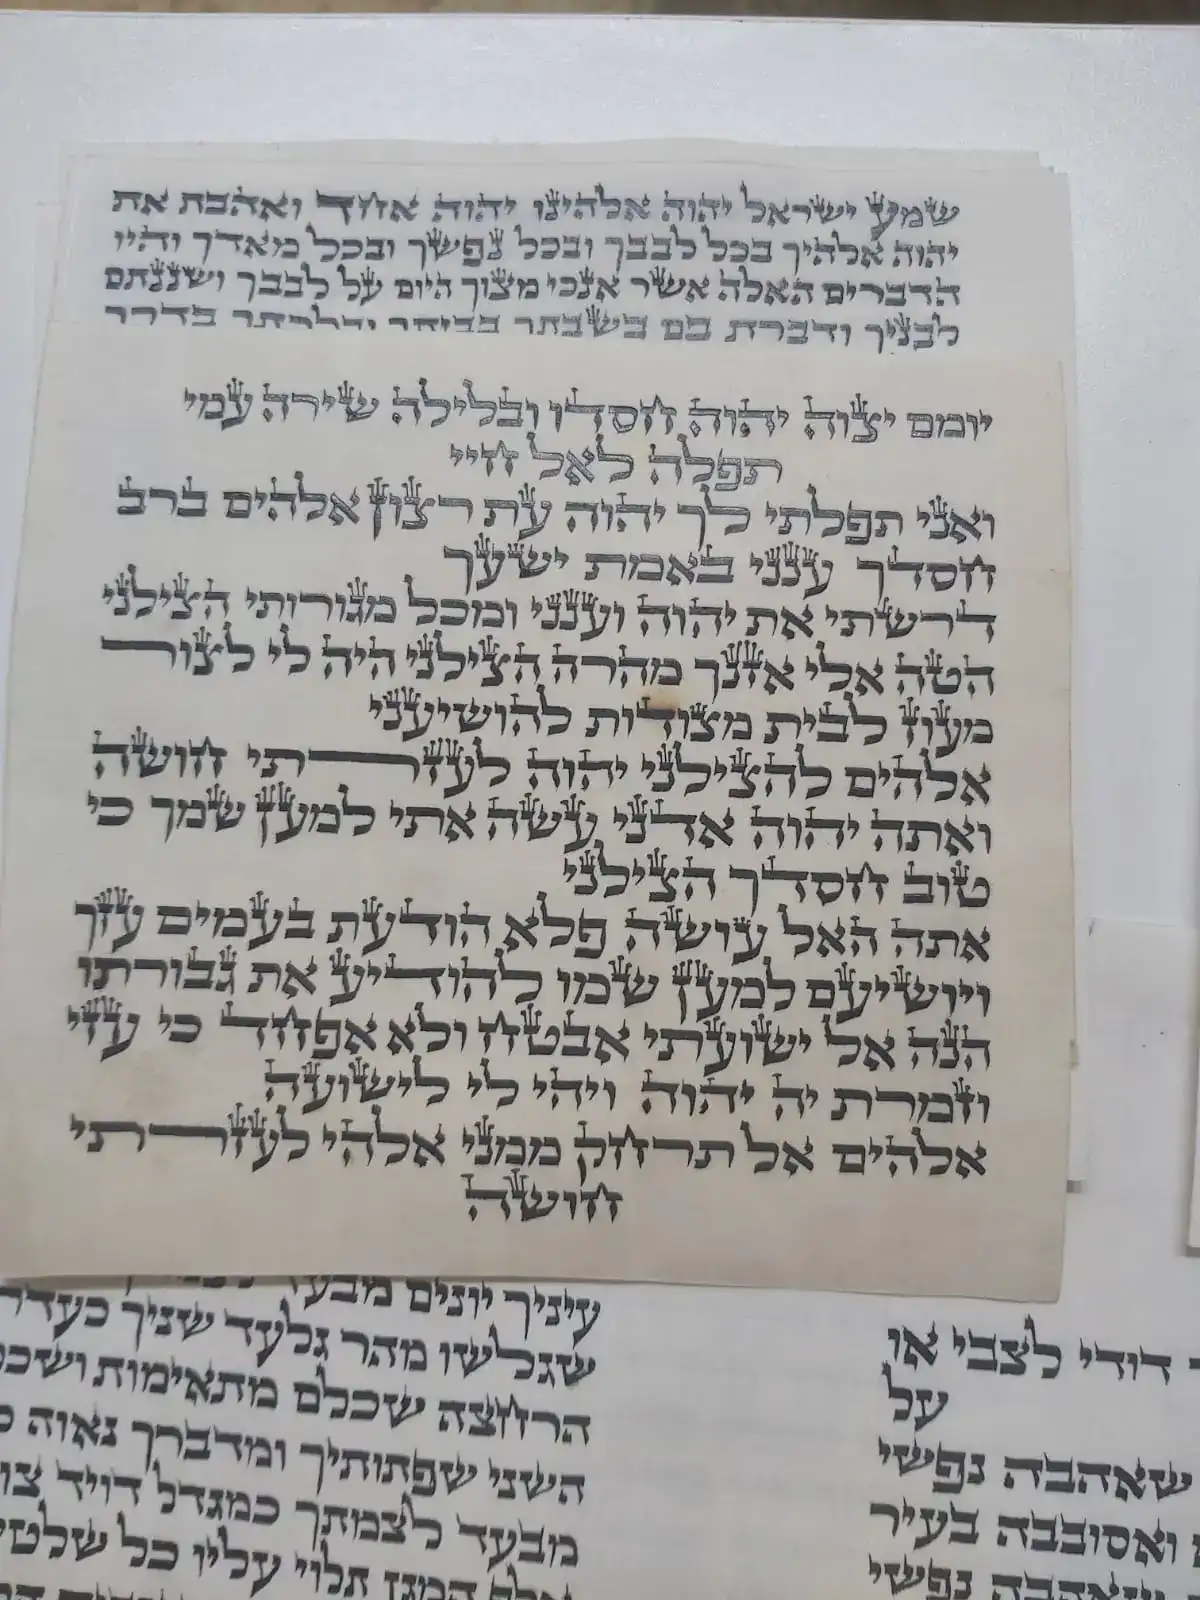 שמע ישראל יהוה אלהינו יהוה אחד ואהבת את
יהוה אלהיך בכל לבבך ובכל נפשך ובכל מאדך והיו
הדברים האלה אשר אנכי מצוך היום על לבבך ושננתם
לבניך ודברת בם בשבתך בביתך ובלכתך בדרך
יומם יצוה יהוה חסדו ובלילה שירה עמי
תפלה לאל חיי
ואני תפלתי לך יהוה עת רצון אלהים ברב
חסדך ענני באמת ישעך
דרשתי את יהוה וענני ומכל מגורותי הצילני
הטה אלי אזנך מהרה הצילני היה לי לצור
מעוז לבית מצודות להושיעני
אלהים להצילני יהוה לעזרתי חושה
ואתה יהוה אדני עשה אתי למען שמך כי
טוב חסדך הצילני
אתה האל עושה פלא הודעת בעמים עזך
ויושיעם למען שמו להודיע את גבורתו
הנה אל ישועתי אבטח ולא אפחד כי עזי
וזמרת יה יהוה ויהי לי לישועה
אלהים אל תרחק ממני אלהי לעזרתי
חושה
עיניך יונים מבעד
שגלשו מהר גלעד שניך כעדר
הרחצה שכלם מתאימות
השני שפתותיך ומדברך נאוה
מבעד לצמתך כמגדל דויד
המגן תלוי עליו כל
דודי לצבי או
על
שאהבה נפשי
ואסובבה בעיר
שאהבה נפשי